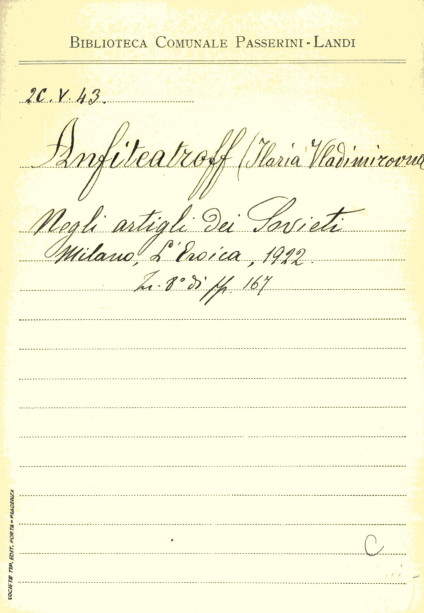 BIBLIOTECA COMUNALE PASSERINI - LANDI
2C. V. 43.
Anfiteatroff (Ilaria Vladimirovna
Negli artigli dei Sovieti
Milano, L'Eroica, 1922.
In-8° di pp. 167
C
SOCIETÀ TIP. EDIT. PORTA - PIACENZA